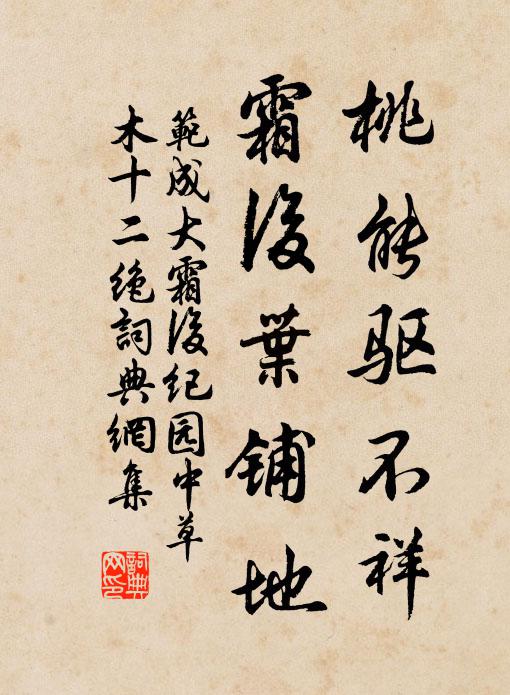 桃能驱不祥
霜後葉铺地
範成大霜後纪园中草
木十二绝詞典網集
詞典網印